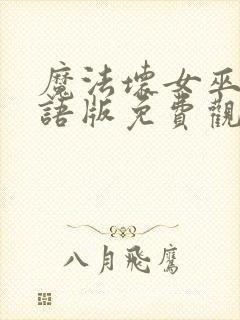 魔法壞女巫
語版免費觀
八月飛鷹